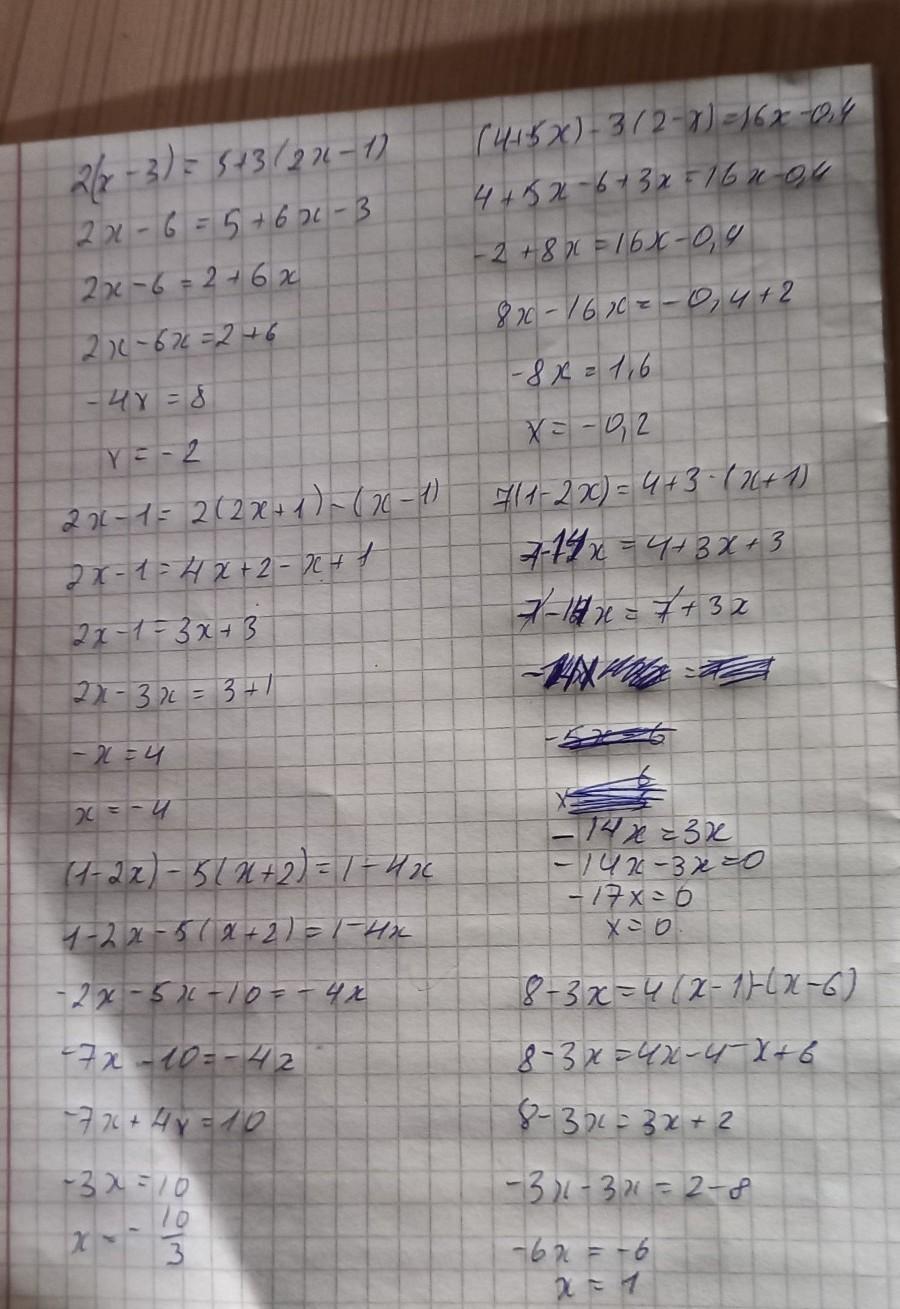 2(x-3)=5+3(2x-1)
2x-6=5+6x-3
2x-6=2+6x
2x-6x=2+6
-4x=8
x=-2
2x-1=2(2x+1)-(x-1)
2x-1=4x+2-x+1
2x-1=3x+3
2x-3x=3+1
-x=4
x=-4
(1-2x)-5(x+2)=1-4x
1-2x-5(x+2)=1-4x
-2x-5x-10=-4x
-7x-10=-4x
-7x+4x=10
-3x=10
x=-10/3
(4+5x)-3(2-x)=16x-0,4
4+5x-6+3x=16x-0,4
-2+8x=16x-0,4
8x-16x=-0,4+2
-8x=1,6
x=-0,2
7(1-2x)=4+3·(x+1)
7-14x=4+3x+3
7-14x=7+3x
-5x=6
-14x=3x
-14x-3x=0
-17x=0
x=0
8-3x=4(x-1)-(x-6)
8-3x=4x-4-x+6
8-3x=3x+2
-3x-3x=2-8
-6x=-6
x=1